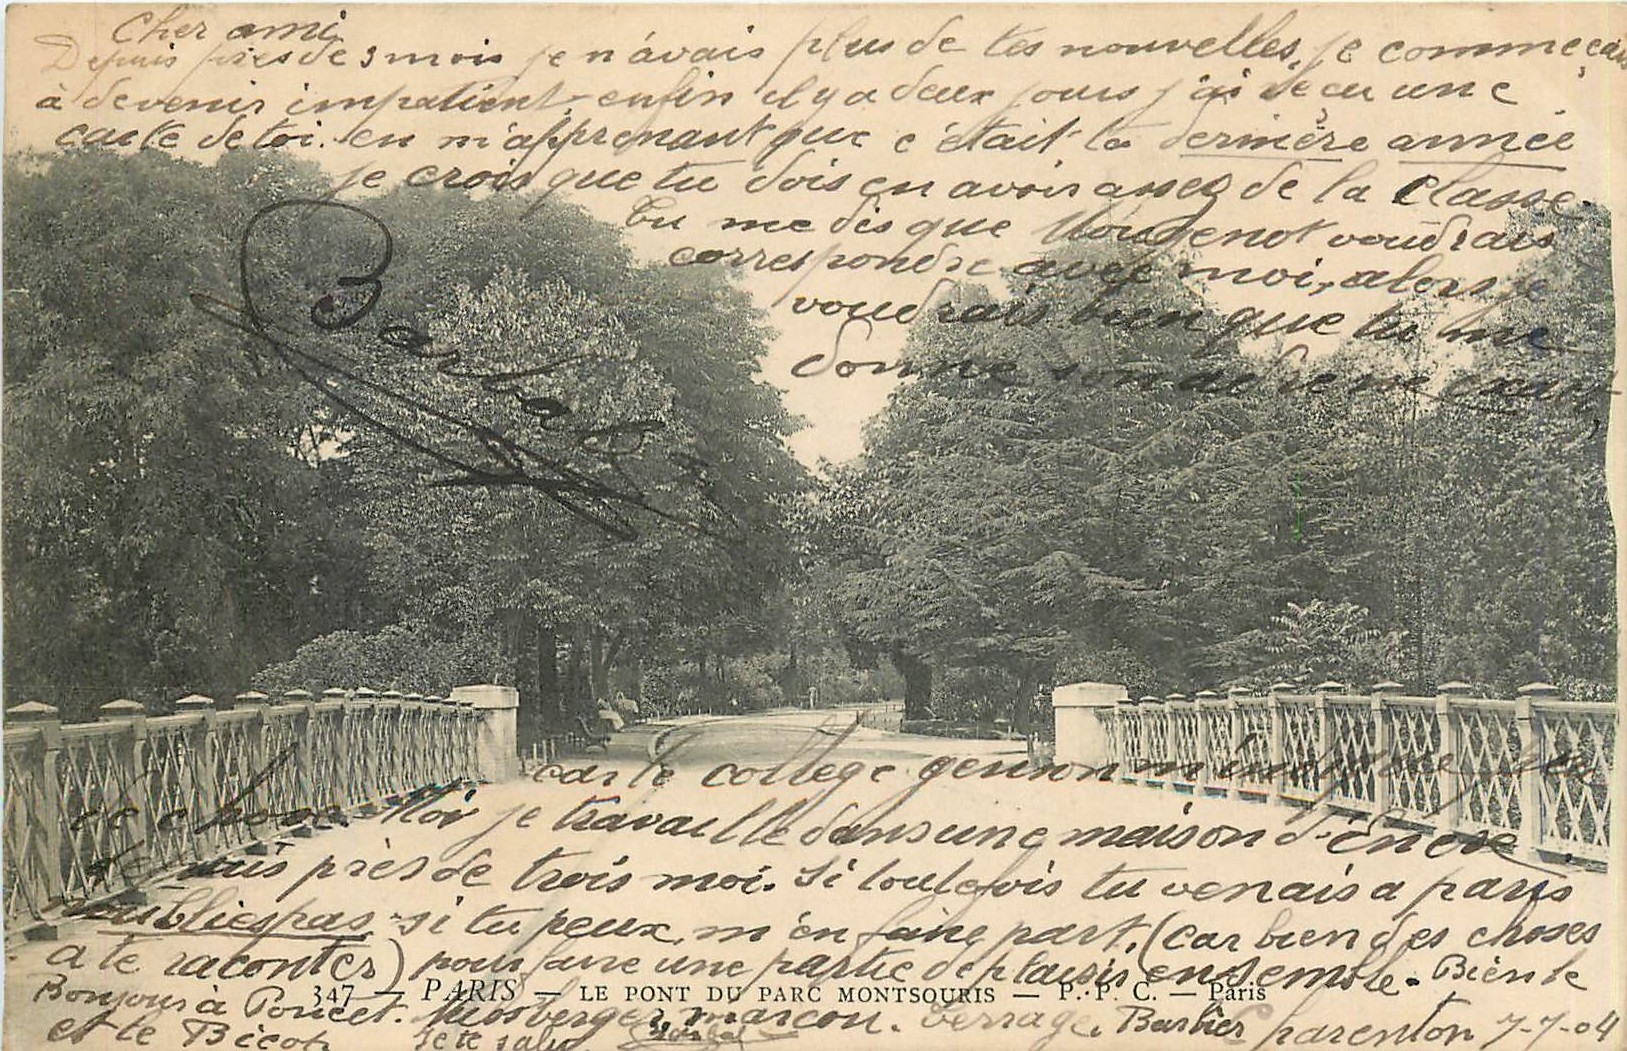 Cher ami
Depuis près de 3 mois je n'avais plus de tes nouvelles, je commeçais
à devenir impatient, enfin il y a deux jours j'ai reçu une
carte de toi. en m'apprenant que c'était ta dernière année
je crois que tu dois en avoir assez de la classe.
Tu me dis que Mougenot voudrais
correspondre avec moi, alors je
voudrais bien que tu me
donne son adresse exacte,
Barbier
car le collège
Moi je travaille dans une maison d'encre
depuis près de trois moi. Si toutefois tu venais a paris
n'oublies pas, si tu peux, m'en faire part, (car bien des choses
a te raconter) pour faire une partie de plaisir ensemble. Bien le
347 — PARIS — LE PONT DU PARC MONTSOURIS — P. P. C. — Paris
Bonjour à Poncet. Mosberger, marcon. Verrage. Barbier Charenton 7-7-04
et le Bicot. Je te salue